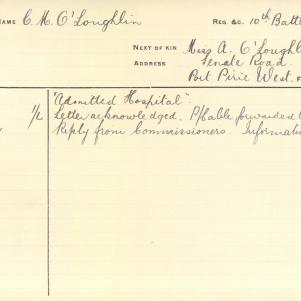 NAME C M O'Loughlin REG. &C. 10th
NEXT OF KIN Miss A. O'Loughl
ADDRESS Senate Road.
Port Pirie West.
1/2 "Admitted Hospital".
Letter acknowledged. P/Cable forwarded
Reply from Commissioners. Informati